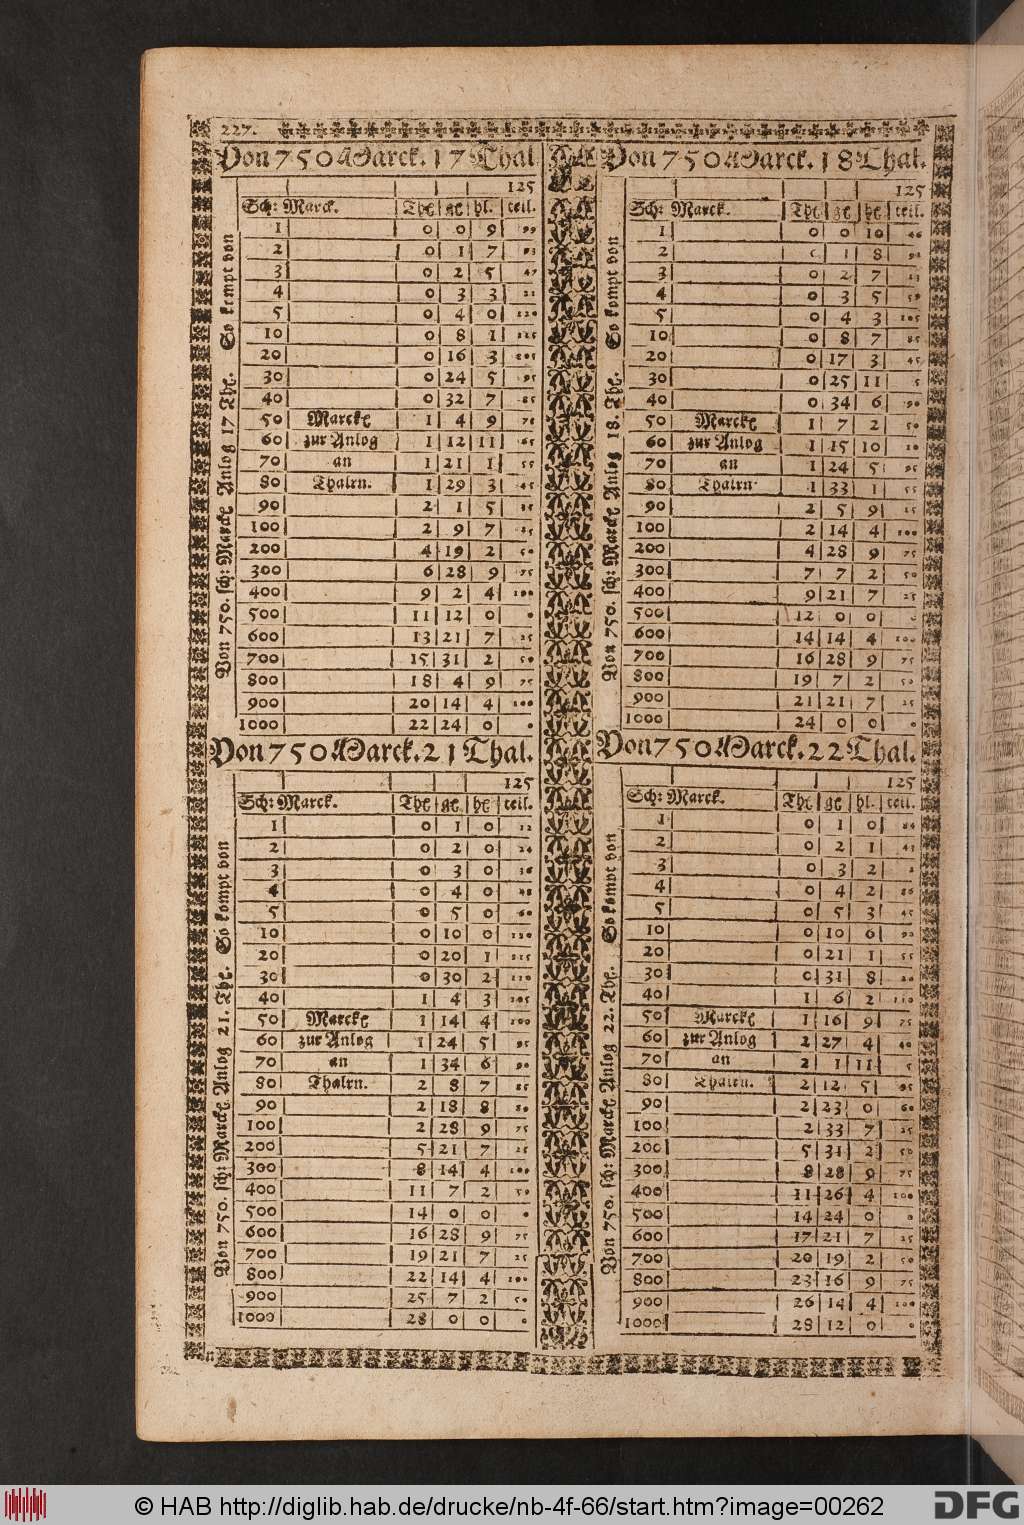 227.
Von 750 Marck. 17 Thal.
125
Sch: Marck. Thl gl hl. teil.
1 0 0 9 99
2 0 1 7 73
3 0 2 5 47
4 0 3 3 21
5 0 4 0 120
10 0 8 1 115
20 0 16 3 105
30 0 24 5 95
40 0 32 7 85
50 Marcke 1 4 9 75
60 zur Anlog 1 12 11 65
70 an 1 21 1 55
80 Thalrn. 1 29 3 45
90 2 1 5 35
100 2 9 7 25
200 4 19 2 50
300 6 28 9 75
400 9 2 4 100
500 11 12 0 0
600 13 21 7 25
700 15 31 2 50
800 18 4 9 75
900 20 14 4 100
1000 22 24 0 0
Von 750. sch: Marcke Anlog 17 Thl. So kompt von
Von 750 Marck. 18 Thal.
125
Sch: Marck. Thl gl hl teil.
1 0 0 10 46
2 1 8 92
3 0 2 7 13
4 0 3 5 59
5 0 4 3 105
10 0 8 7 85
20 0 17 3 45
30 0 25 11 5
40 0 34 6 90
50 Marcke 1 7 2 50
60 zur Anlog 1 15 10 10
70 an 1 24 5 95
80 Thalrn. 1 33 1 55
90 2 5 9 15
100 2 14 4 100
200 4 28 9 75
300 7 7 2 50
400 9 21 7 25
500 12 0 0
600 14 14 4 100
700 16 28 9 75
800 19 7 2 50
900 21 21 7 25
1000 24 0 0 0
Von 750. sch: Marcke Anlog 18. Thl. So kompt von
Von 750 Marck. 21 Thal.
125
Sch: Marck. Thl gl. hl teil.
1 0 1 0 12
2 0 2 0 24
3 0 3 0 36
4 0 4 0 48
5 0 5 0 60
10 0 10 0 120
20 0 20 1 115
30 0 30 2 110
40 1 4 3 105
50 Marcke 1 14 4 100
60 zur Anlog 1 24 5 95
70 an 1 34 6 90
80 Thalrn. 2 8 7 85
90 2 18 8 80
100 2 28 9 75
200 5 21 7 25
300 8 14 4 100
400 11 7 2 50
500 14 0 0 0
600 16 28 9 75
700 19 21 7 25
800 22 14 4 100
900 25 7 2 50
1000 28 0 0 0
Von 750. sch: Marcke Anlog 21. Thl. So kompt von
Von 750 Marck. 22 Thal.
125
Sch: Marck. Thl gl hl. teil.
1 0 1 0 84
2 0 2 1 43
3 0 3 2 2
4 0 4 2 86
5 0 5 3 45
10 0 10 6 90
20 0 21 1 55
30 0 31 8 20
40 1 6 2 110
50 Marcke 1 16 9 75
60 zur Anlog 2 27 4 40
70 an 2 1 11 5
80 Thalrn. 2 12 5 95
90 2 23 0 60
100 2 33 7 25
200 5 31 2 50
300 8 28 9 75
400 11 26 4 100
500 14 24 0 0
600 17 21 7 25
700 20 19 2 50
800 23 16 9 75
900 26 14 4 100
1000 28 12 0 0
Von 750. sch: Marcke Anlog 22. Thl. So kompt von
© HAB http://diglib.hab.de/drucke/nb-4f-66/start.htm?image=00262
DFG